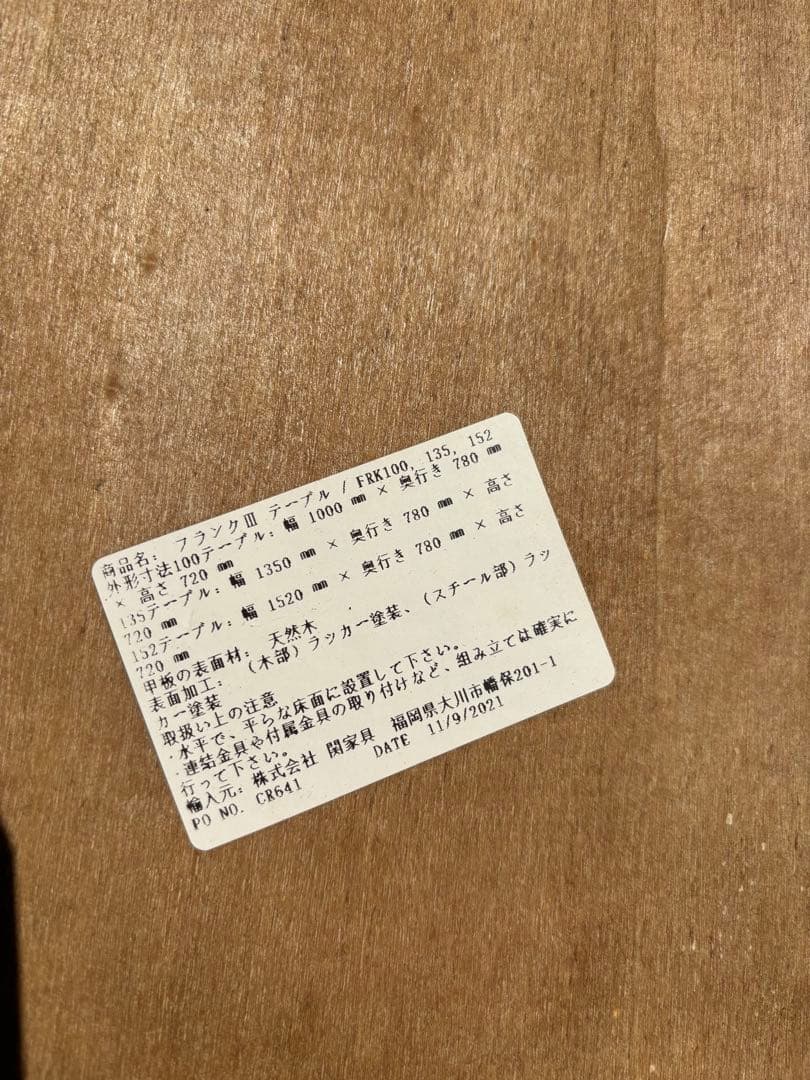 商品名: フランクⅢ テーブル / FRK100, 135, 152
外形寸法100テーブル: 幅 1000 mm × 奥行き 780 mm
× 高さ 720 mm
135テーブル: 幅 1350 mm × 奥行き 780 mm × 高さ
720 mm
152テーブル: 幅 1520 mm × 奥行き 780 mm × 高さ
720 mm
甲板の表面材: 天然木
表面加工: (木部)ラッカー塗装、(スチール部)ラッ
カー塗装
取扱い上の注意
・水平で、平らな床面に設置して下さい。
・連結金具や付属金具の取り付けなど、組み立ては確実に
行って下さい。
輸入元: 株式会社 関家具 福岡県大川市幡保201-1
PO NO. CR641 DATE 11/9/2021